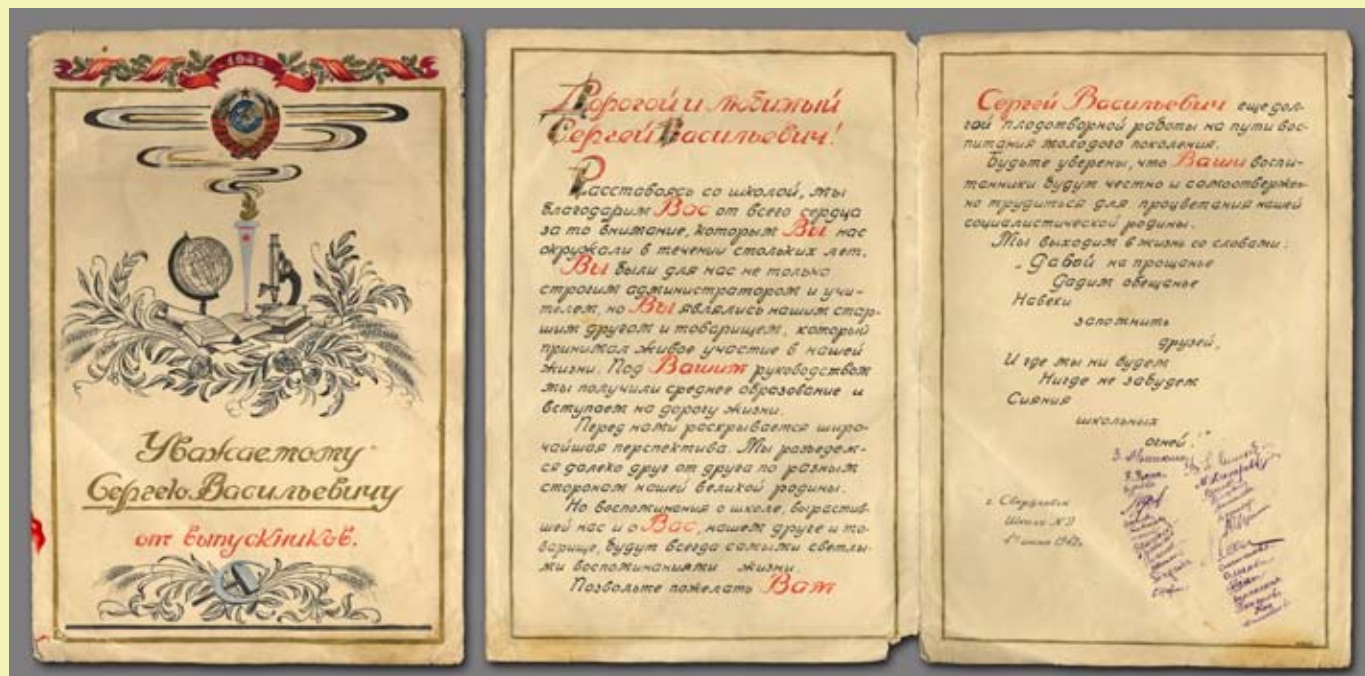 Уважаемому
Сергею Васильевичу
от выпускников.
Дорогой и любимый
Сергей Васильевич!
Расставаясь со школой, мы
благодарим Вас от всего сердца
за то внимание, которым Вы нас
окружали в течении стольких лет.
Вы были для нас не только
строгим администратором и учи-
телем, но Вы являлись нашим стар-
шим другом и товарищем, который
принимал живое участие в нашей
жизни. Под Вашим руководством
мы получили среднее образование и
вступаем на дорогу жизни.
Перед нами раскрывается широ-
чайшая перспектива. Мы разъедем-
ся далеко друг от друга по разным
сторонам нашей великой родины.
Но воспоминания о школе, вырастив-
шей нас и о Вас, нашем друге и то-
варище, будут всегда самыми светлы-
ми воспоминаниями жизни.
Позвольте пожелать Вам
Сергей Васильевич еще дол-
гой плодотворной работы на пути вос-
питания молодого поколения.
Будьте уверены, что Ваши воспи-
танники будут честно и самоотвержен-
но трудиться для процветания нашей
социалистической родины.
Мы выходим в жизнь со словами:
„Давай на прощанье
Дадим обещанье
Навеки
запомнить
друзей,
И где мы ни будем
Нигде не забудем
Сияния
школьных
огней."
г. Свердловск
Школа №9